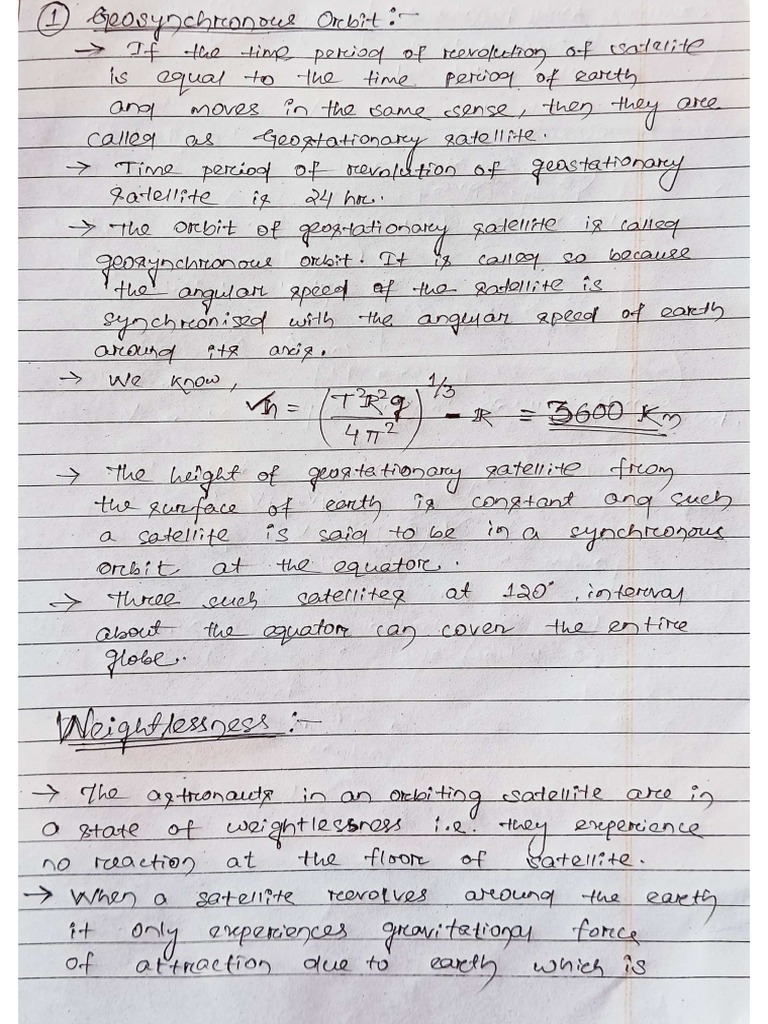 ① Geosynchronous Orbit :-
→ If the time period of revolution of satelite
is equal to the time period of earth
and moves in the same sense, then they are
called as Geostationary satellite.
→ Time period of revolution of geastationary
satellite is 24 hr.
→ The orbit of geostationary satellite is called
geosynchronous orbit. It is called so because
the angular speed of the satellite is
synchronised with the angular speed of earth
around its axis.
→ We know,
h = (T²R²g / 4π²)^1/3 - R = 3600 Km
→ The height of geostationary satellite from
the surface of earth is constant and such
a satellite is said to be in a synchronous
orbit at the equator.
→ Three such satellites at 120° interval
about the equator can cover the entire
globe.
Weightlessness :-
→ The astronauts in an orbiting satellite are in
a state of weightlessness i.e. they experience
no reaction at the floor of satellite.
→ When a satellite revolves around the earth
it only experiences gravitational force
of attraction due to earth which is